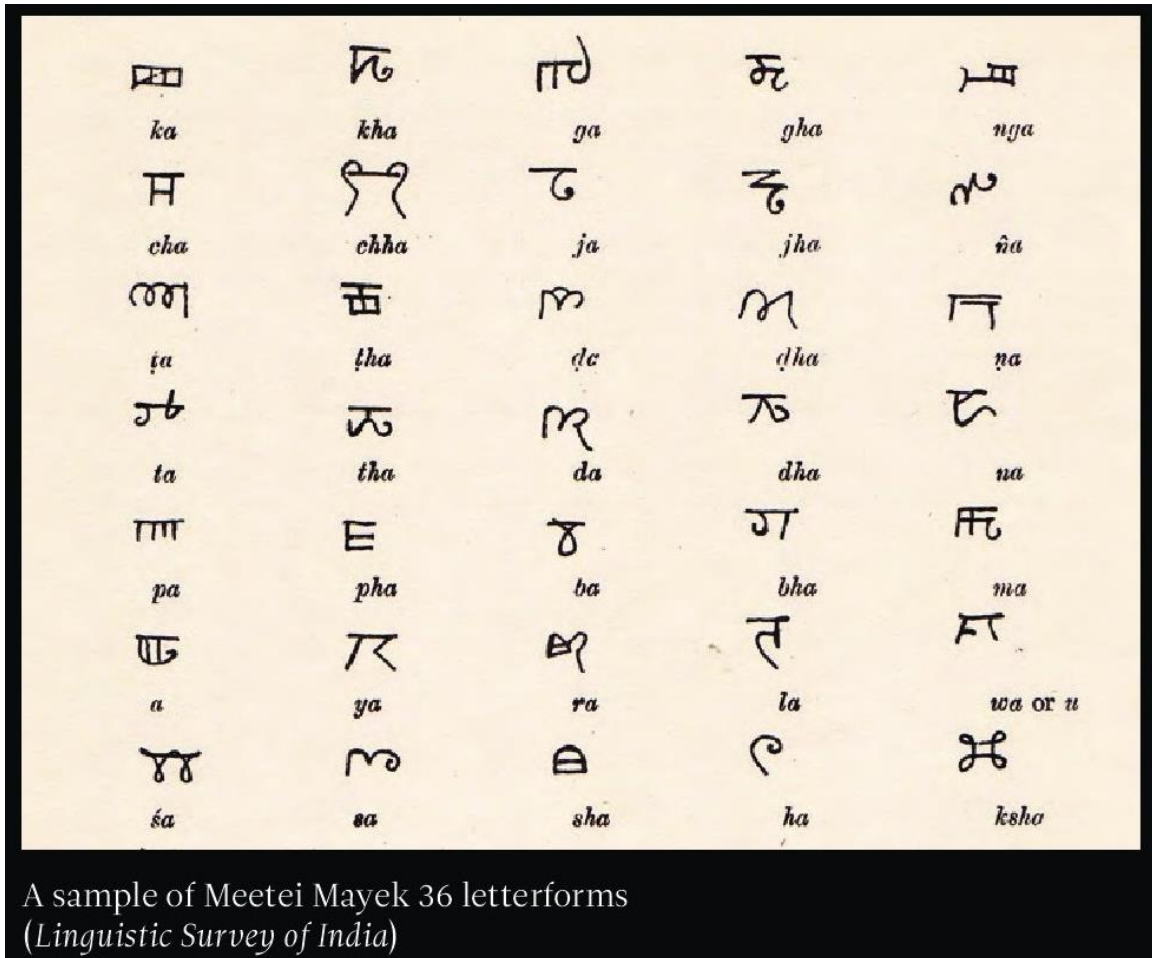 ꯀ ꯈ ꯒ ꯘ ꯉ
ka kha ga gha nga
ꯆ ꫢ ꯖ ꯓ ꫣ
cha chha ja jha ña
ꫤ ꫥ ꫦ ꫧ ꫨ
ṭa ṭha ḍa ḍha ṇa
ꯇ ꯊ ꯗ ꯙ ꯅ
ta tha da dha na
ꯄ ꯐ ꯕ ꯚ ꯃ
pa pha ba bha ma
ꯑ ꯌ ꯔ ꯂ ꯋ
a ya ra la wa or u
ꫩ ꯁ ꫪ ꯍ
śa sa sha ha ksha
A sample of Meetei Mayek 36 letterforms
(Linguistic Survey of India)